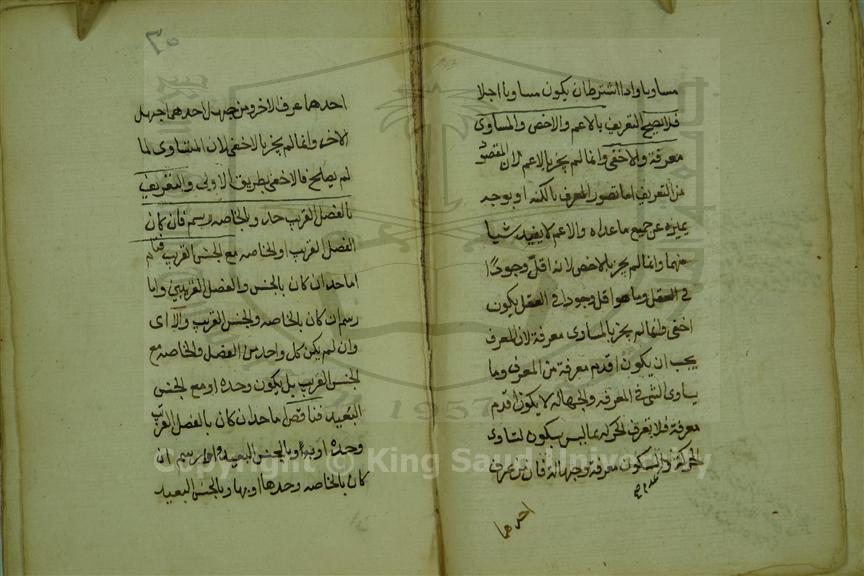 مساويا واذا اشترط ان يكون مساويا اجلا
فلا يصح التعريف بالاعم والاخص والمساوى
معرفة والاخفى وانما لم يجز بالاعم لان المقصود
من التعريف اما تصور المعرف بالكنه او بوجه
يميزه عن جميع ما عداه والاعم لا يفيد شيا
منهما وانما لم يجز بالاخص لانه اقل وجودا
فى العقل وما هو اقل وجودا فى العقل يكون
اخفى وانما لم يجز بالمساوى معرفة لان المعرف
يجب ان يكون اقدم معرفة من المعرف وما
يساوى الشى فى المعرفه والجهاله لا يكون اقدم
معرفة فلا تعرف الحركه بما ليس بسكون لتساوى
الحركة والسكون معرفة وجهالة فان من عرف
احدهما
٣٠
احدهما عرف الاخر ومن جهل احدهما جهل
الاخر وانما لم يجز بالاخفى لان المتساوى لما
لم يصلح فالاخفى بطريق الاولى والتعريف
بالفصل القريب حد وبالخاصه رسم فان كان
الفصل القريب او الخاصه مع الجنس القريب فتام
اما حد ان كان بالجنس والفصل القريبين واما
رسم ان كان بالخاصه والجنس القريب والا اى
وان لم يكن كل واحد من الفصل والخاصه مع
الجنس القريب بل يكون وحده او مع الجنس
البعيد فناقص اما حد ان كان بالفصل القريب
وحده او به وبالجنس البعيد واما رسم ان
كان بالخاصه وحدها او بها وبالجنس البعيد
Copyright © King Saud University
1957